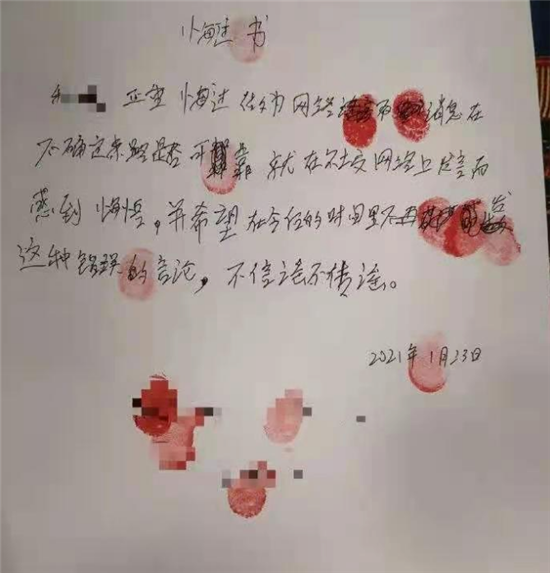 悔过书
悔过 网络 消息在
不确定来路是否可靠 就在社交网络上发言而
感到 悔悟，并希望在今后的时间里不再 发
这种错误的言论，不信谣不传谣。
2021年1月23日